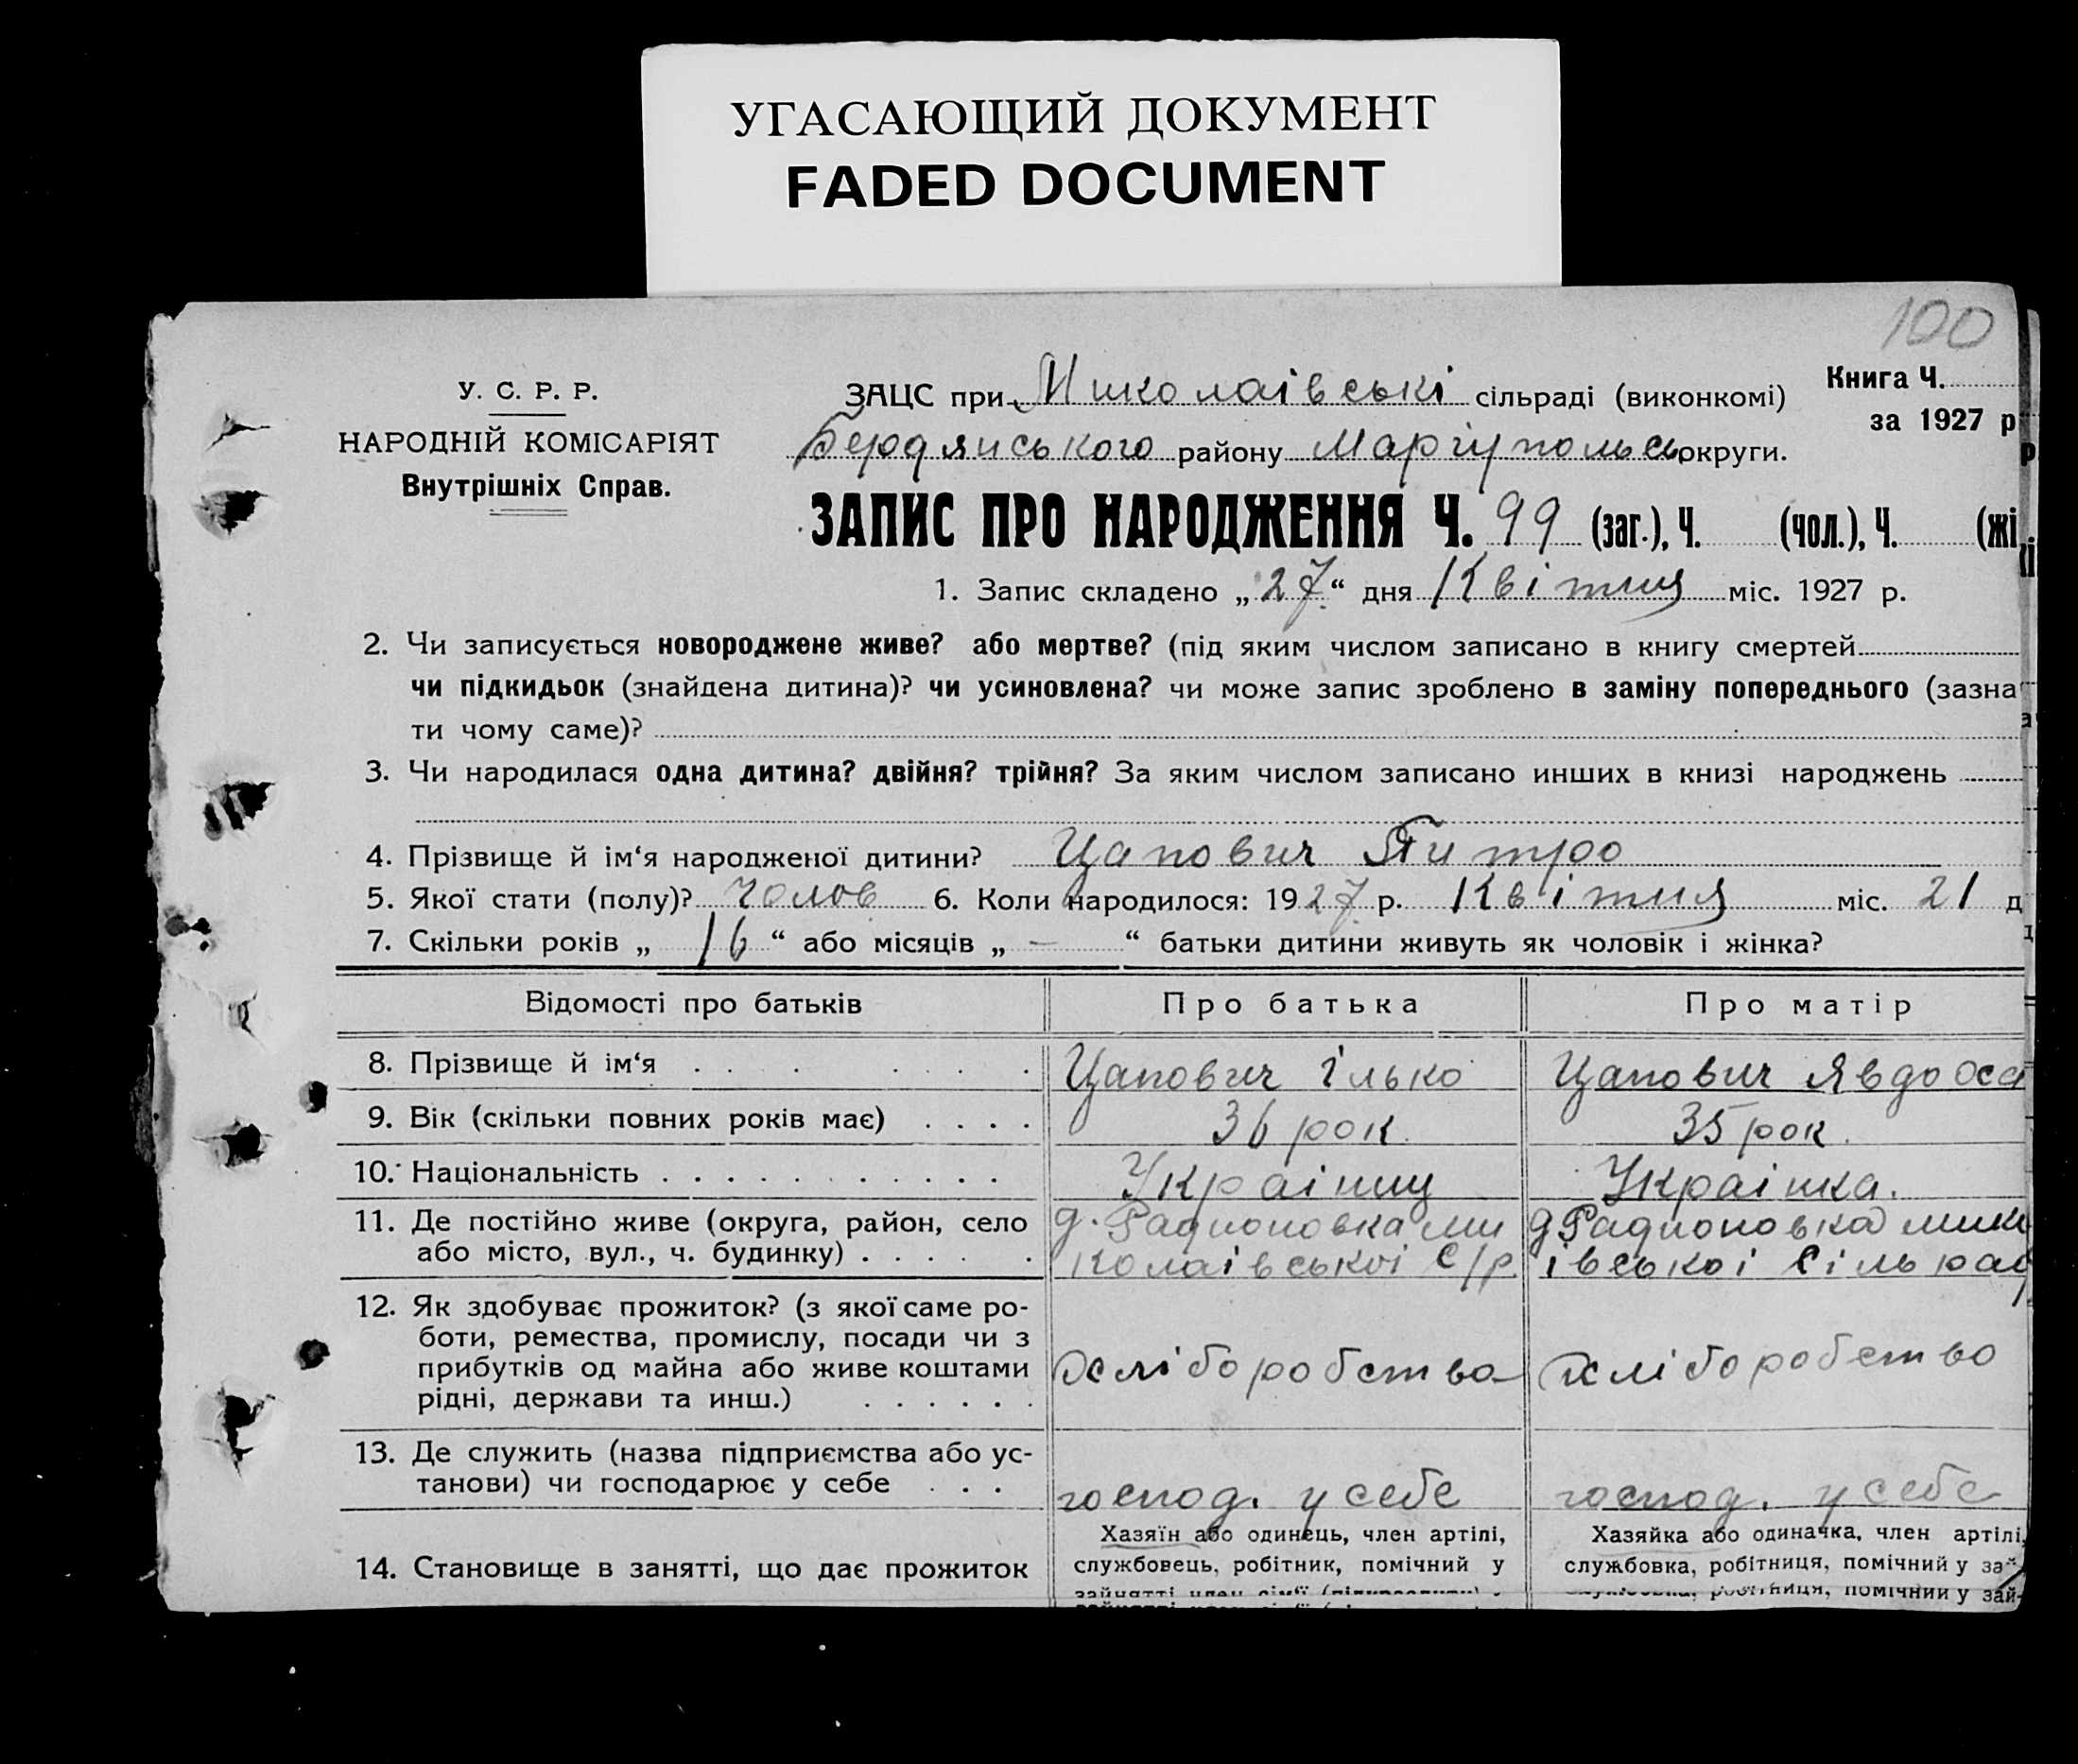 УГАСАЮЩИЙ ДОКУМЕНТ
FADED DOCUMENT
100
У. С. Р. Р.
НАРОДНІЙ КОМІСАРІЯТ
Внутрішніх Справ.
ЗАЦС при Миколаівські сільраді (виконкомі)
Бердянського району Маріупольськ округи.
Книга Ч.
за 1927 р
ЗАПИС ПРО НАРОДЖЕННЯ Ч. 99 (заг.), Ч. (чол.), Ч. (жі
1. Запис складено „27“ дня Квітня міс. 1927 р.
2. Чи записується новороджене живе? або мертве? (під яким числом записано в книгу смертей
чи підкидьок (знайдена дитина)? чи усиновлена? чи може запис зроблено в заміну попереднього (зазна
ти чому саме)?
3. Чи народилася одна дитина? двійня? трійня? За яким числом записано инших в книзі народжень
4. Прізвище й ім‘я народженої дитини? Цапович Питро
5. Якої стати (полу)? Чолов 6. Коли народилося: 1927 р. Квітня міс. 21 д
7. Скільки років „ 16 “ або місяців „ – “ батьки дитини живуть як чоловік і жінка?
Відомості про батьків Про батька Про матір
8. Прізвище й ім‘я . . . . . . . Цапович Ілько Цапович Явдоха
9. Вік (скільки повних років має) . . . . 36 рок. 35 рок.
10. Національність . . . . . . . . . . . Украінец Украінка.
11. Де постійно живе (округа, район, село
або місто, вул., ч. будинку) . . . . . .
д. Радионовка Ми
колаівськоі С/р.
д Радионовка мик
івськоі Сільрад
12. Як здобуває прожиток? (з якої саме ро-
боти, ремества, промислу, посади чи з
прибутків од майна або живе коштами
рідні, держави та инш.) . . . . . .
хліборобство хліборобство
13. Де служить (назва підприємства або ус-
танови) чи господарює у себе . . .
господ. у себе господ. у себе
14. Становище в занятті, що дає прожиток
Хазяїн або одинець, член артілі,
службовець, робітник, помічний у
Хазяйка або одиначка, член артілі,
службовка, робітниця, помічний у зай